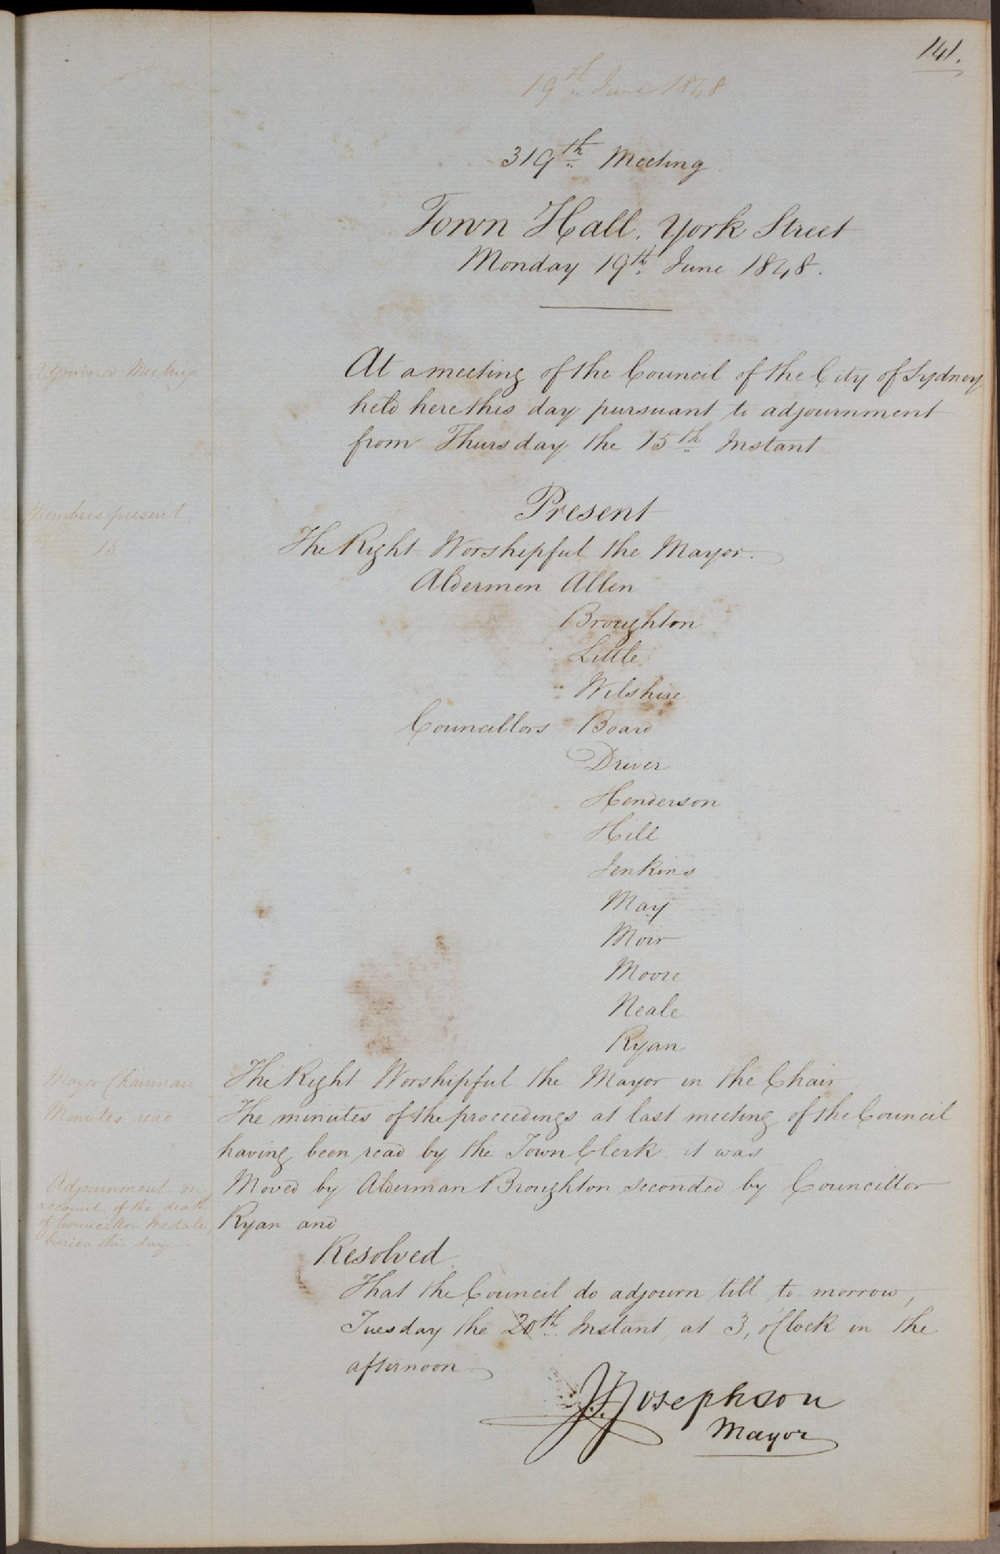 141.
19th June 1848
319th Meeting
Town Hall. York Street
Monday 19th June 1848.
Adjourned Meeting
At a meeting of the Council of the City of Sydney
held here this day pursuant to adjournment
from Thursday the 15th Instant
Members present
15
Present
The Right Worshipful the Mayor.
Aldermen Allen
Broughton
Little
Wilshire
Councillors Board
Driver
Henderson
Hill
Jenkins
May
Moir
Moore
Neale
Ryan
Mayor Chairman
The Right Worshipful the Mayor in the Chair
Minutes read
The minutes of the proceedings at last meeting of the Council
having been read by the Town Clerk. it was
Adjournment on
account of the death
of Councillor
buried this day
Moved by Alderman Broughton seconded by Councillor
Ryan and
Resolved
That the Council do adjourn till to morrow,
Tuesday the 20th Instant at 3, o'Clock in the
afternoon
J. Josephson
Mayor